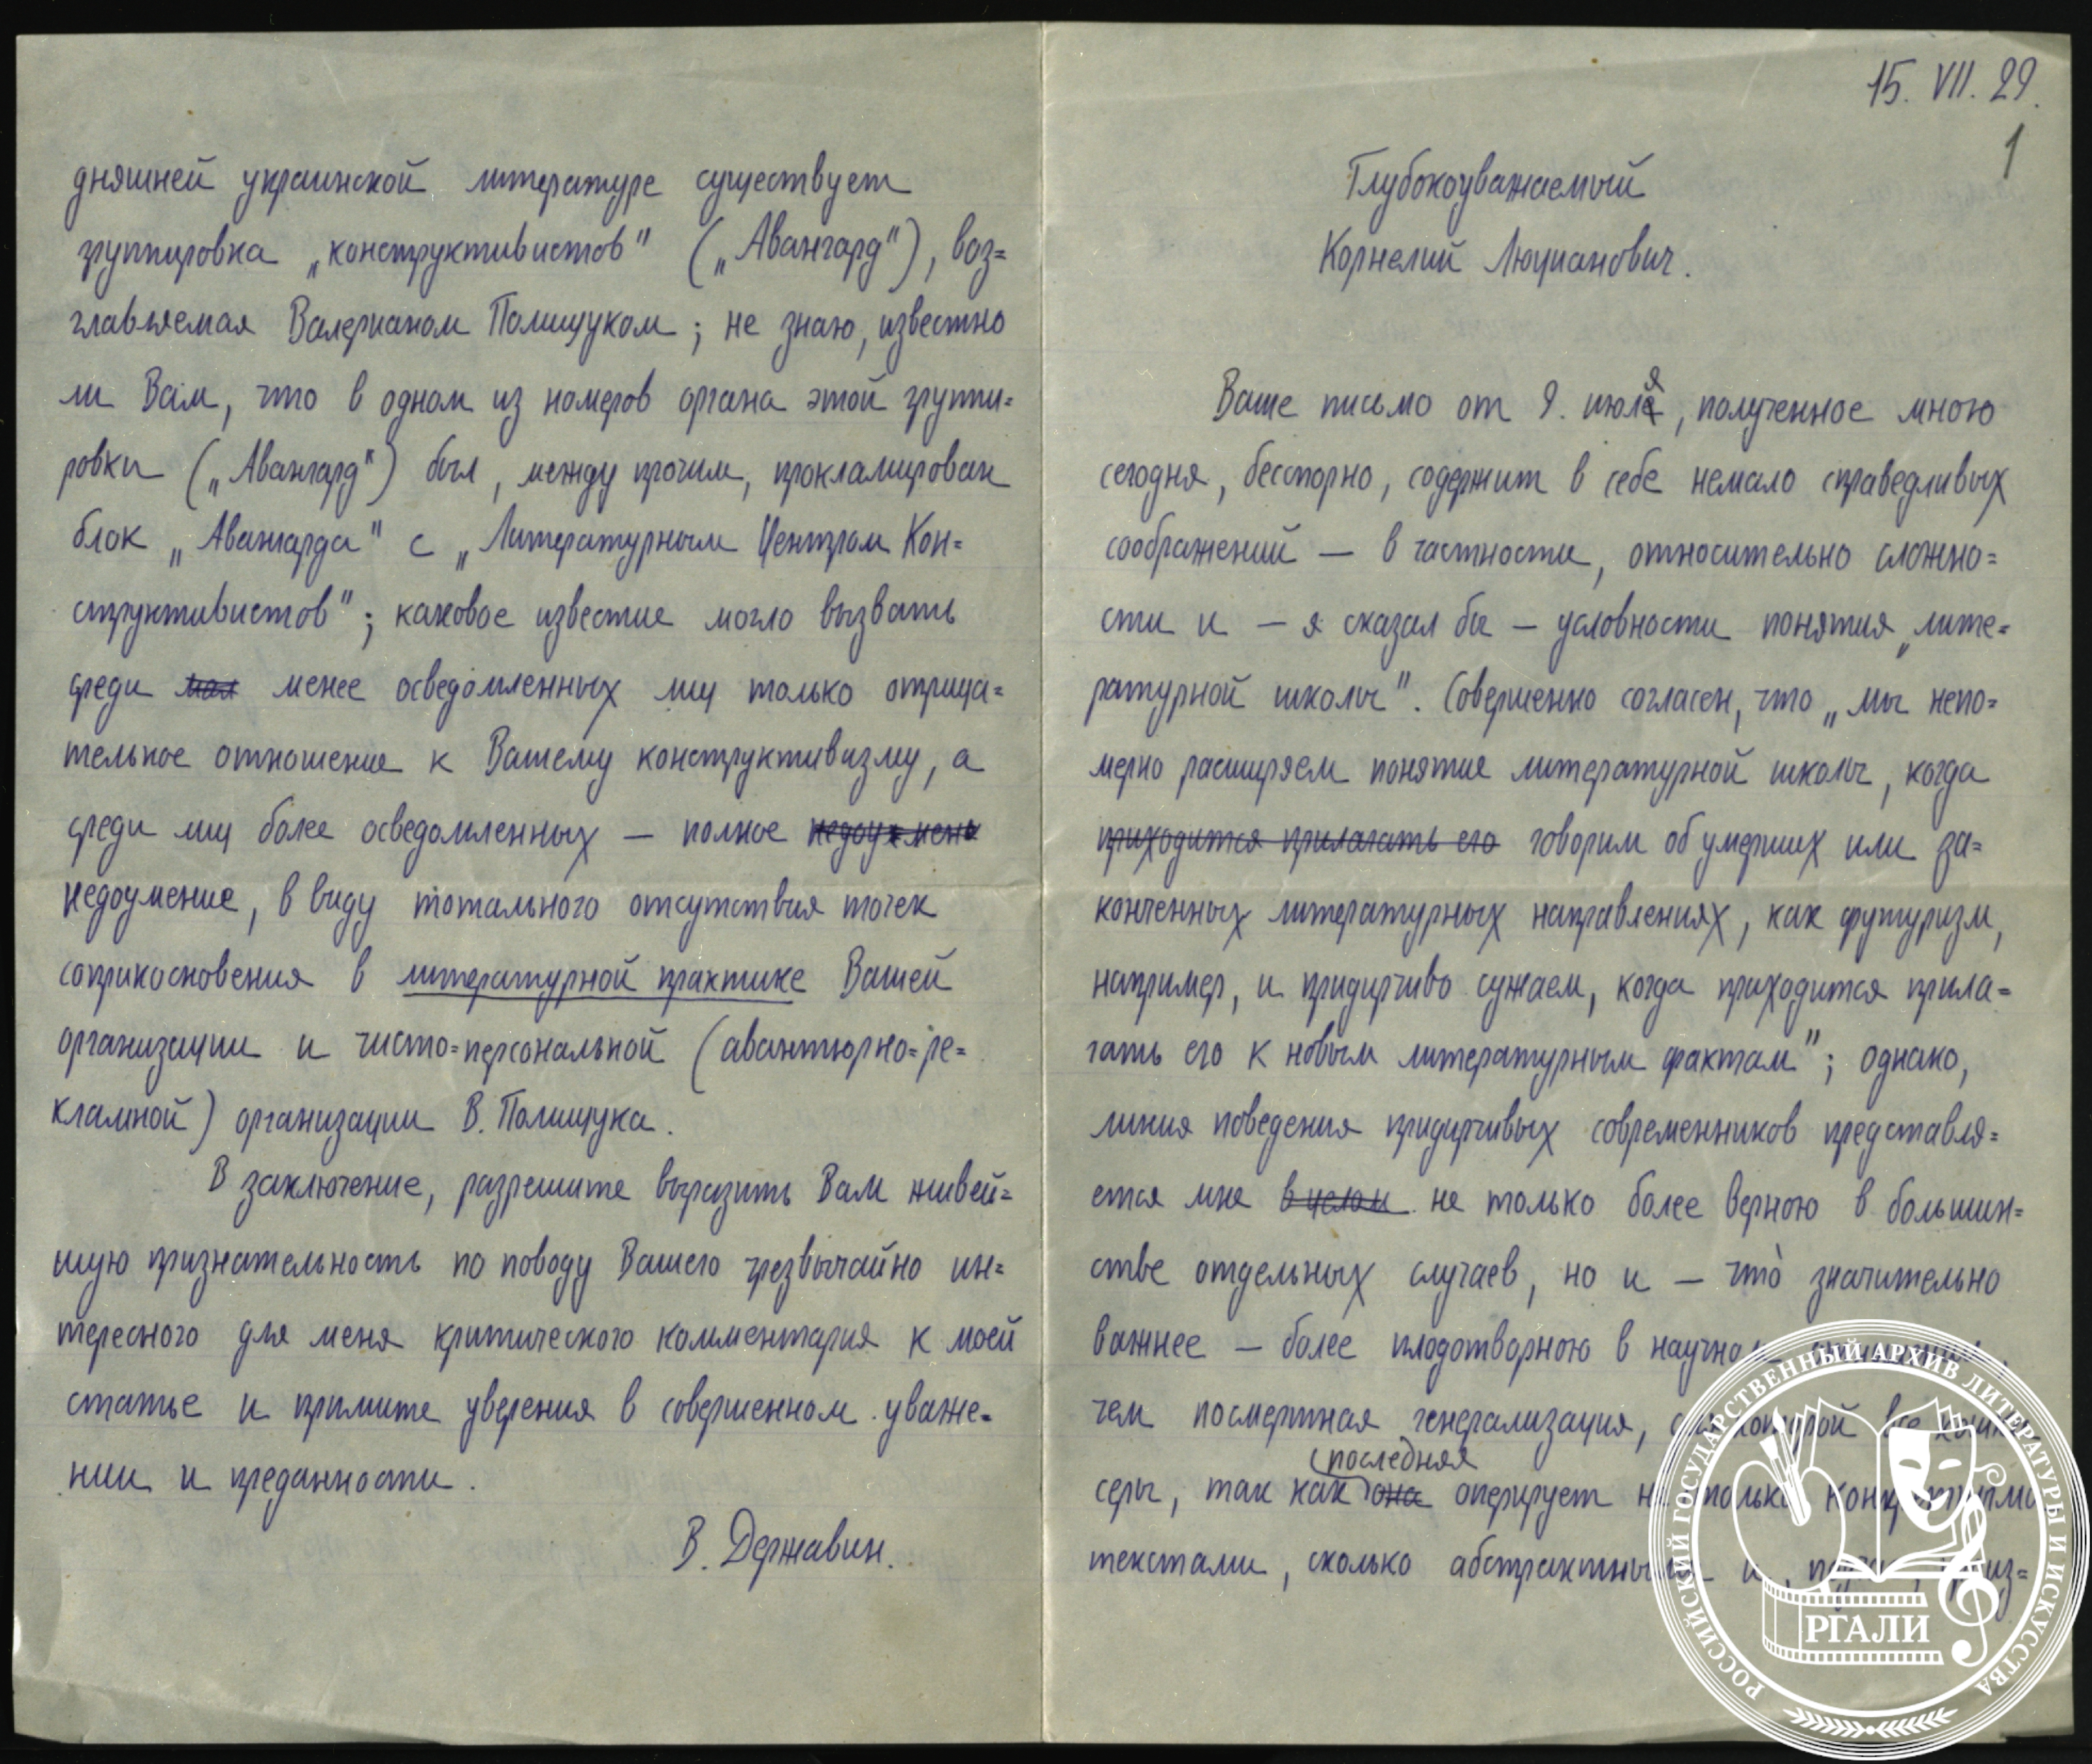 15. VII. 29.
1
Глубокоуважаемый
Корнелий Люцианович.
Ваше письмо от 9. июля, полученное мною
сегодня, бесспорно, содержит в себе немало справедливых
соображений — в частности, относительно сложно=
сти и — я сказал бы — условности понятия „лите=
ратурной школы". Совершенно согласен, что „мы непо=
мерно расширяем понятие литературной школы, когда
приходится прилагать его говорим об умерших или за=
конченных литературных направлениях, как футуризм,
например, и придирчиво сужаем, когда приходится прила=
гать его к новым литературным фактам"; однако,
линия поведения придирчивых современников представля=
ется мне в целом не только более верною в большин=
стве отдельных случаев, но и — что̀ значительно
важнее — более плодотворною в научном
чем посмертная генерализация, для которой все кошки
серы, так как она последняя оперирует не только конкретными
текстами, сколько абстрактными и, из=
дняшней украинской литературе существует
группировка „конструктивистов" („Авангард"), воз=
главляемая Валерианом Полищуком; не знаю, известно
ли Вам, что в одном из номеров органа этой группи=
ровки („Авангард") был, между прочим, прокламирован
блок „Авангарда" с „Литературным Центром Кон=
структивистов"; каковое известие могло вызвать
среди мал менее осведомленных лиц только отрица=
тельное отношение к Вашему конструктивизму, а
среди лиц более осведомленных — полное
недоумение, в виду тотального отсутствия точек
соприкосновения в литературной практике Вашей
организации и чисто=персональной (авантюрно=ре=
кламной) организации В. Полищука.
В заключение, разрешите выразить Вам живей=
шую признательность по поводу Вашего чрезвычайно ин=
тересного для меня критического комментария к моей
статье и примите уверения в совершенном уваже=
нии и преданности.
В. Державин.
РОССИЙСКИЙ ГОСУДАРСТВЕННЫЙ АРХИВ ЛИТЕРАТУРЫ И ИСКУССТВА
РГАЛИ